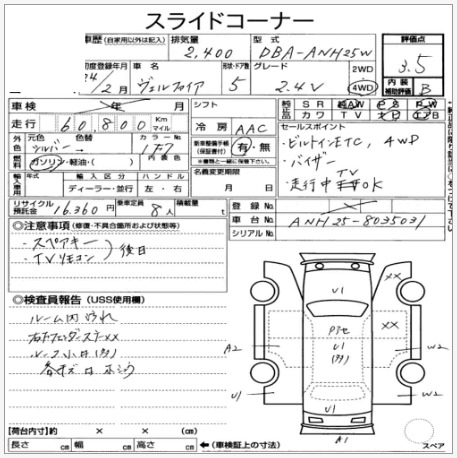 スライドコーナー
車歴 (自家用以外は記入) 排気量 型式
2,400 DBA-ANH25W
評価点
3.5
初度登録年月 車名 形状・ドア数 グレード 2WD
24/2月 ヴェルファイア 5 2.4V 4WD
内装補助評価 B
車検 年 月 シフト
純正品 SR AW PS PW
カワ TV ナビ エアB
走行 60,800 Km マイル
冷房 AAC
セールスポイント
・ビルトインETC, 4WD
・バイザー
・走行中TV OK
外色 元色 色替 カラーNo.
シルバー 1F7
新車整備手帳(保証書付) 有・無
※書類と一緒に保管下さい。
燃料 ガソリン・軽油・( ) 内装色
名義変更期限
月 日
輸入車用 年式 輸入区分 ハンドル
ディーラー・並行 左・右
リサイクル預託金 16,360円 乗車定員 8人 積載量 t
登録No.
車台No. ANH25-8035031
シリアルNo.
◎注意事項 (修復・不具合箇所および状態等)
・スペアキー
・TVリモコン
後日
◎検査員報告 (USS使用欄)
ルーム内汚れ
右フェンダーステーXX
【荷台内寸】約 × × (cm)
長さ cm 幅 cm 高さ cm ←(車検証上の寸法)
U1
XX
XX
U1
A2
W2
U1
W2
A1
スペア